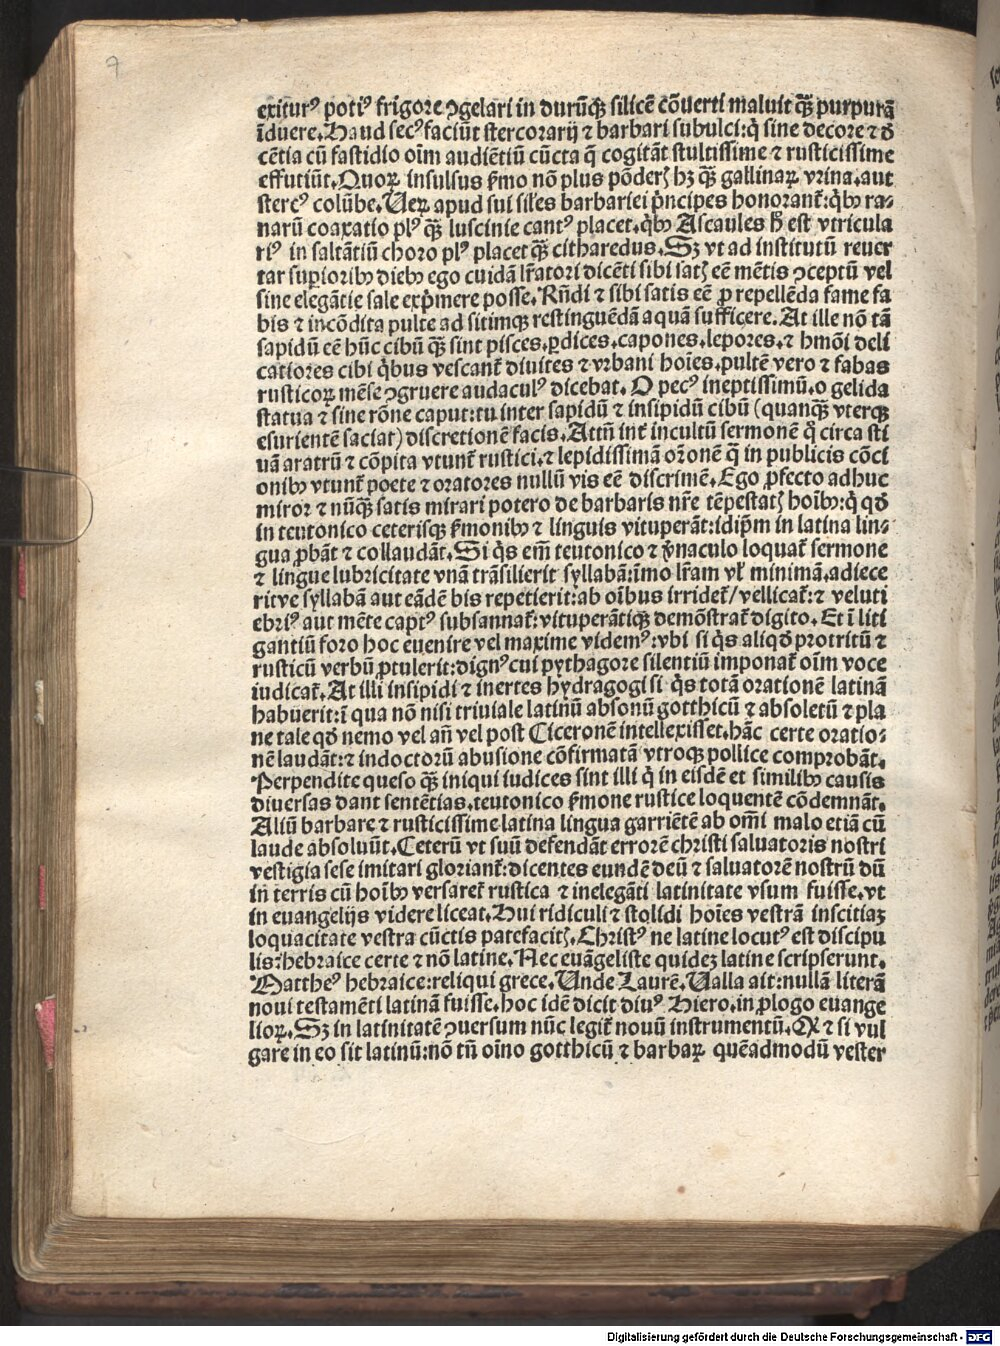 7
exiturꝰ potiꝰ frigore ↄgelari in durūqꝫ silicē cōuerti maluit qꝫ̄ purpurā
īduere. Haud secꝰ faciūt stercorarij ⁊ barbari subulci: q̇ sine decore ⁊ d̓
cētia cū fastidio oīm audiētiū cūcta q̄ cogitāt stultissime ⁊ rusticissime
effutiūt. Quoꝝ insulsus ẜmo nō plus pōderꝭ hꝫ qꝫ̄ gallinaꝝ vrina. aut
stercꝰ colūbe. Ueꝝ apud sui siles barbariei pͥncipes honorant᷑: qͥbꝰ ra⸗
narū coaxatio plꝰ qꝫ̄ luscinie cantꝰ placet. qͥbꝰ Ascaules h̄ est vtricula
riꝰ in saltātiū choro plꝰ placet qꝫ̄ citharedus. Sꝫ vt ad institutū reuer
tar suꝑioribꝰ diebꝰ ego cuidā lr̄atori dicēti sibi satꝭ eē mētis ↄceptū vel
sine elegātie sale expͥmere posse. Rn̄di ⁊ sibi satis eē ꝓ repellēda fame fa
bis ⁊ incōdita pulte ad sitimqꝫ restinguēdā aquā sufficere. At ille nō tā
sapidū eē hūc cibū qꝫ̄ sint pisces. ꝑdices. capones. lepores. ⁊ hmōi deli
catiores cibi qͥbus vescant᷑ diuites ⁊ vrbani hoīes. pultē vero ⁊ fabas
rusticoꝝ mēse ↄgruere audaculꝰ dicebat. O pecꝰ ineptissimū. o gelida
statua ⁊ sine rōne caput: tu inter sapidū ⁊ insipidū cibū (quanqꝫ̄ vterqꝫ
esurientē saciat) discretionē facis. Attn̄ int᷑ incultū sermonē q̇ circa sti
uā aratrū ⁊ cōpita vtunt᷑ rustici. ⁊ lepidissimā orōnē q̄ in publicis cōci
onibꝰ vtunt᷑ poete ⁊ oratores nullū vis eē discrimē. Ego ꝓfecto adhuc
miror ⁊ nūqꝫ̄ satis mirari potero de barbaris nr̄e tēpestatꝭ hoībꝰ: q̇ qd̓
in teutonico ceterisqꝫ ẜmonibꝰ ⁊ linguis vituperāt: idip̄m in latina lin⸗
gua ꝓbāt ⁊ collaudāt. Si qͥs em̄ teutonico ⁊ v̓naculo loquat᷑ sermone
⁊ lingue lubricitate vnā trāsilierit syllabā: īmo lr̄am vl̓ minimā. adiece
ritve syllabā aut eādē bis repetierit: ab oībus irridet᷑/ vellicat᷑: ⁊ veluti
ebriꝰ aut mēte captꝰ subsannat᷑: vituperātiqꝫ demōstrat᷑ digito. Et ī liti
gantiū foro hoc euenire vel maxime videmꝰ: vbi si qͥs aliqd̓ protritū ⁊
rusticū verbū ꝓtulerit: dignꝰ cui pythagore silentiū imponat᷑ oīm voce
iudicat᷑. At illi insipidi ⁊ inertes hydragogi si qͥs totā orationē latinā
habuerit: ī qua nō nisi triuiale latinū absonū gotthicū ⁊ absoletū ⁊ pla
ne tale qd̓ nemo vel an̄ vel post Ciceronē intellexisset. hāc certe oratio⸗
nē laudāt: ⁊ indoctorū abusione cōfirmatā vtroqꝫ pollice comprobāt.
Perpendite queso qꝫ̄ iniqui iudices sint illi q̇ in eisdē et similibꝰ causis
diuersas dant sentētias. teutonico ẜmone rustice loquentē cōdemnāt.
Aliū barbare ⁊ rusticissime latina lingua garriētē ab om̄i malo etiā cū
laude absoluūt. Ceterū vt suū defendāt errorē christi saluatoris nostri
vestigia sese imitari gloriant᷑: dicentes eundē deū ⁊ saluatorē nostrū dū
in terris cū hoībꝰ versaret᷑ rustica ⁊ inelegāti latinitate vsum fuisse. vt
in euangelijs videre liceat. Hui ridiculi ⁊ stolidi hoīes vestrā inscitiaꝫ
loquacitate vestra cūctis patefacitꝭ. Christꝰ ne latine locutꝰ est discipu
lis: hebraice certe ⁊ nō latine. Nec euāgeliste quideꝫ latine scripserunt.
Mattheꝰ hebraice: reliqui grece. Unde Laurē. Ualla ait: nullā literā
noui testamēti latinā fuisse. hoc idē dicit diuꝰ Hiero. in ꝓlogo euange
lioꝝ. Sꝫ in latinitatē ↄuersum nūc legit᷑ nouū instrumentū. Qd̓ ⁊ si vul
gare in eo sit latinū: nō tn̄ oīno gotthicū ⁊ barbaꝝ quēadmodū vester
Digitalisierung gefördert durch die Deutsche Forschungsgemeinschaft - DFG